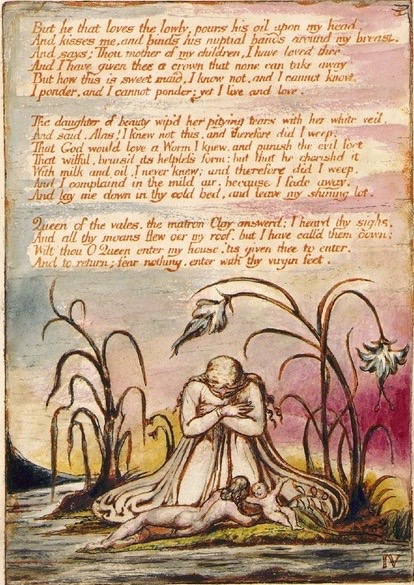 But he that loves the lowly, pours his oil upon my head.
And kisses me, and binds his nuptial bands around my breast.
And says; Thou mother of my children, I have loved thee.
And I have given thee a crown that none can take away
But how this is sweet maid, I know not, and I cannot know,
I ponder, and I cannot ponder; yet I live and love.
The daughter of beauty wip'd her pitying tears with her white veil,
And said. Alas! I knew not this, and therefore did I weep:
That God would love a Worm I knew, and punish the evil foot
That wilful, bruis'd its helpless form: but that he cherish'd it
With milk and oil. I never knew; and therefore did I weep.
And I complaind in the mild air, because I fade away,
And lay me down in thy cold bed, and leave my shining lot.
Queen of the vales, the matron Clay answerd; I heard thy sighs.
And all thy moans flew o'er my roof. but I have call'd them down:
Wilt thou O Queen enter my house. 'tis given thee to enter,
And to return; fear nothing. enter with thy virgin feet.
IV